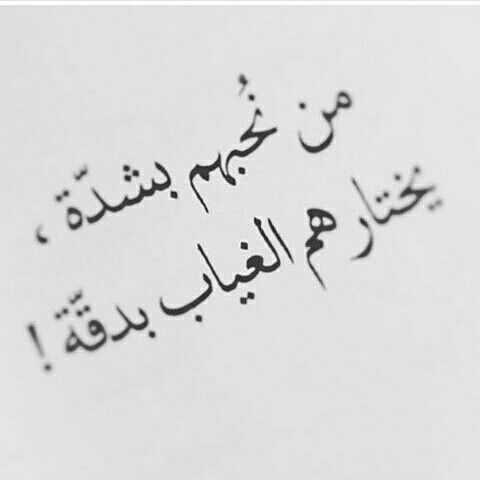 من نُحبهم بشدّة ،
يختار هم الغياب بدقّة !